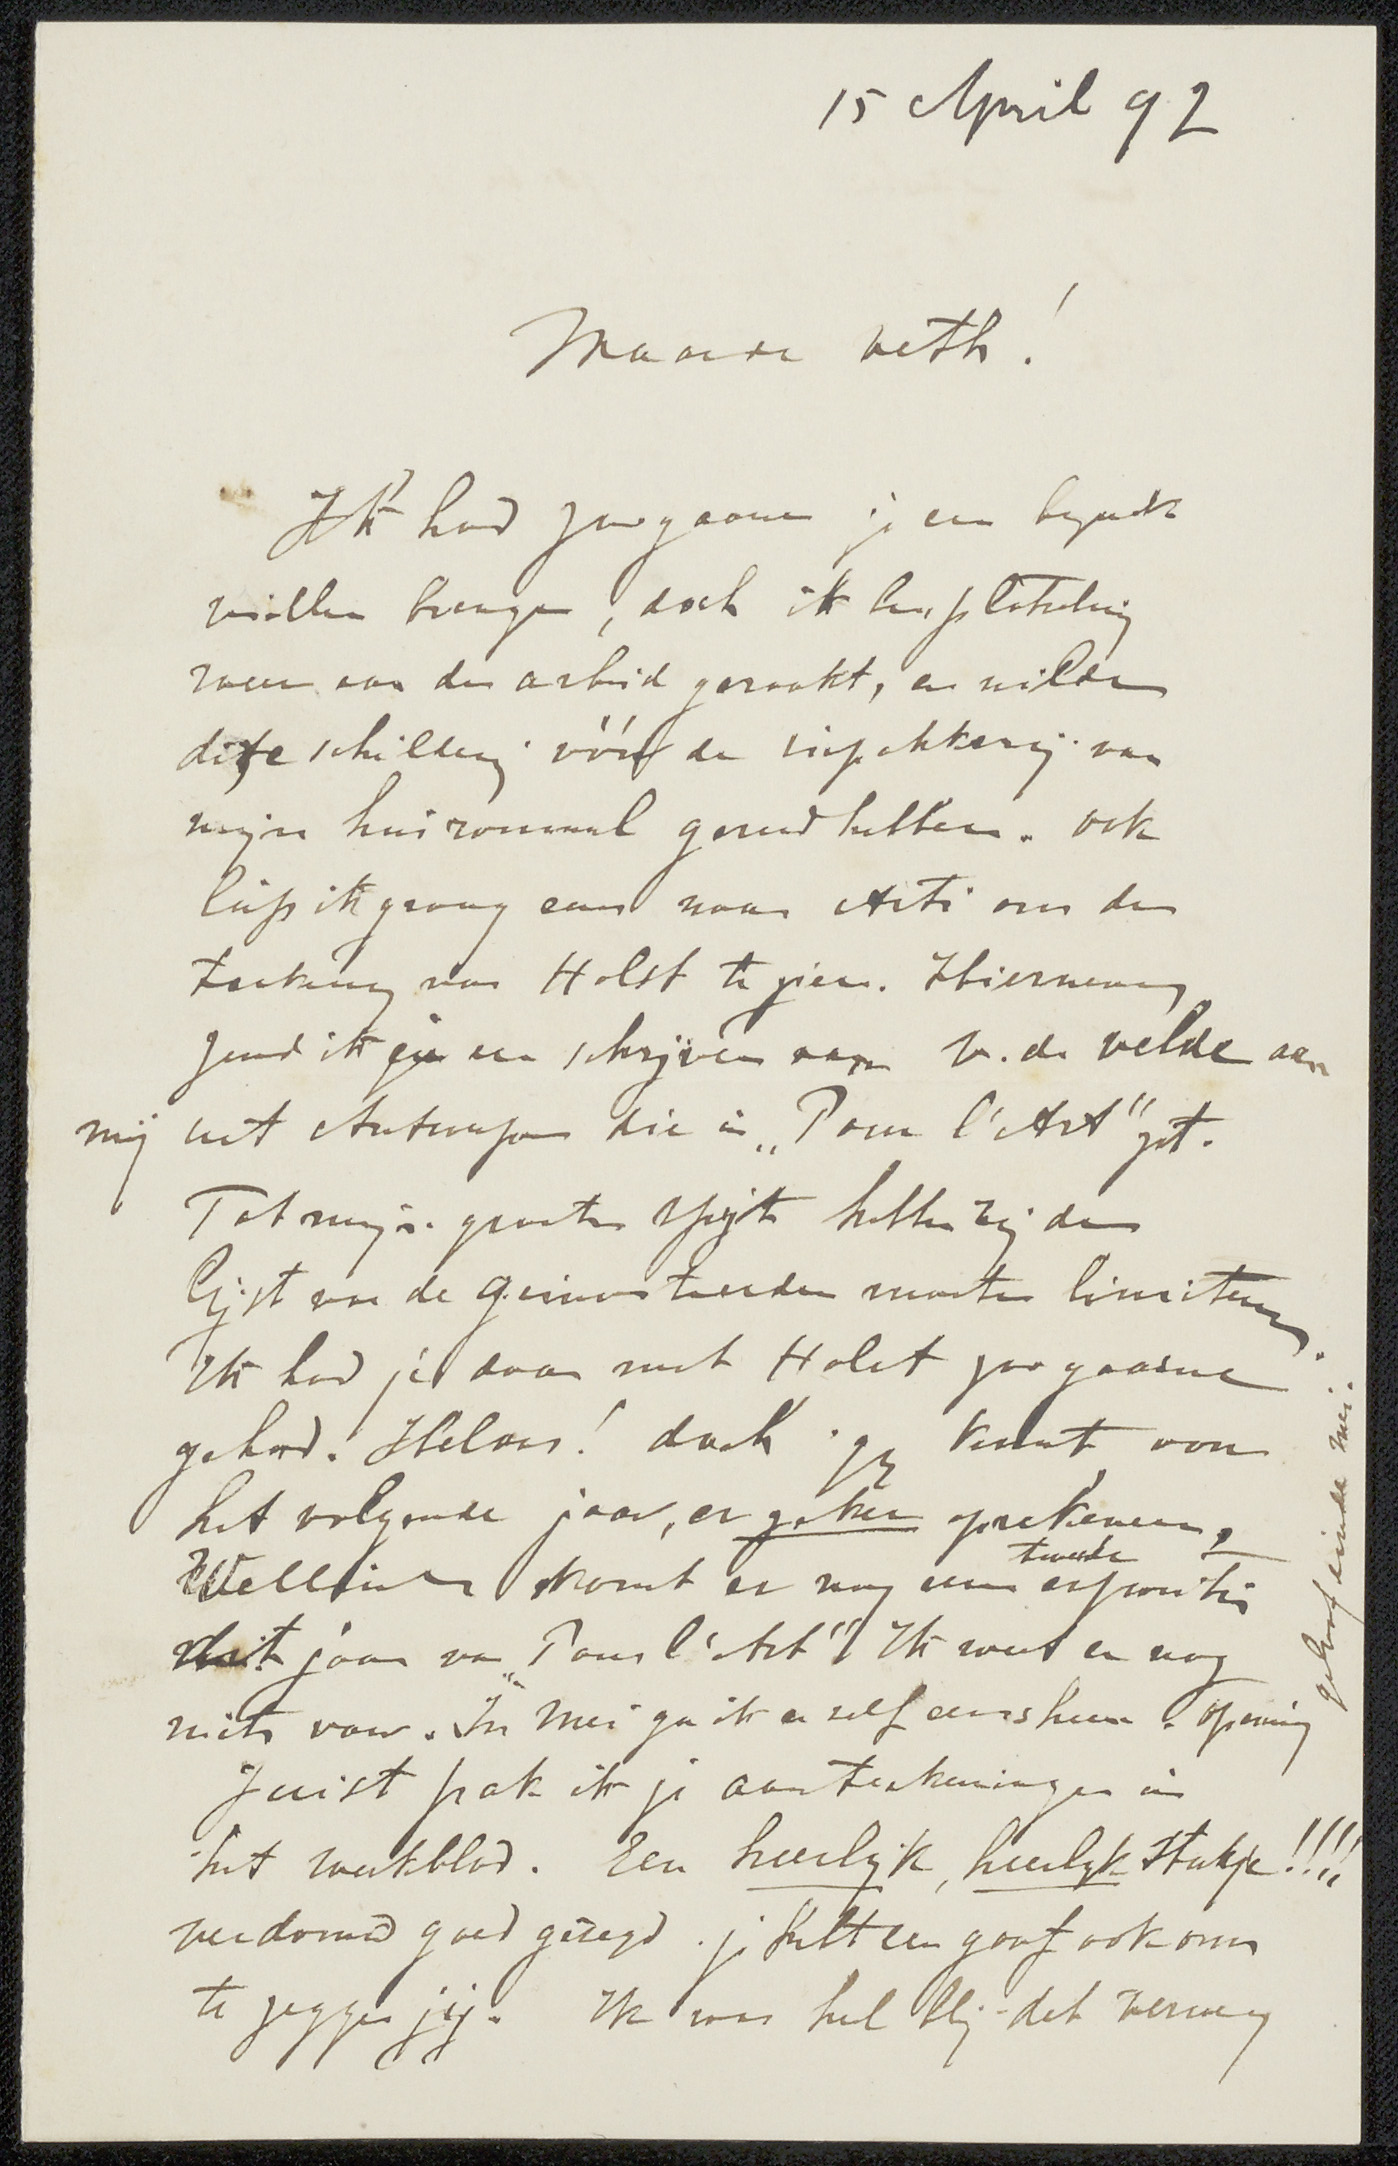 15 April 92
Waarde Veth!
Ik had zoo gaarne je een bezoek
willen brengen, doch ik ben plotseling
weer aan den arbeid geraakt, en wilde
deze schilderij vóór de inpakkerij van
mijn huisraad gereed hebben. Ook
liep ik graag eens naar Arti om de
teekening van Holst te zien. Hiernevens
zend ik je een schrijven van v. de Velde aan
mij uit Antwerpen die in „Pour l'Art" zit.
Tot mijn groote spijt hebben zij de
lijst van de geinviteerden moeten limiteeren.
Ik had je daar met Holst zoo gaarne
gehad. Helaas! doch je kunt voor
het volgende jaar, er zeker oprekenen,
Wellicht komt er nog een tweede expositie
dit jaar van „Pour l'Art" Ik weet er nog
niets van. In Mei ga ik er zelf eens heen. Opening
geloof einde Mei.
Juist pak ik je aanteekeningen in
het weekblad. Een heerlijk, heerlijk stukje!!!!
verdomd goed gezegd. je hebt een gaaf ook om
te zeggen jij. Ik was heel blij dat Verwey